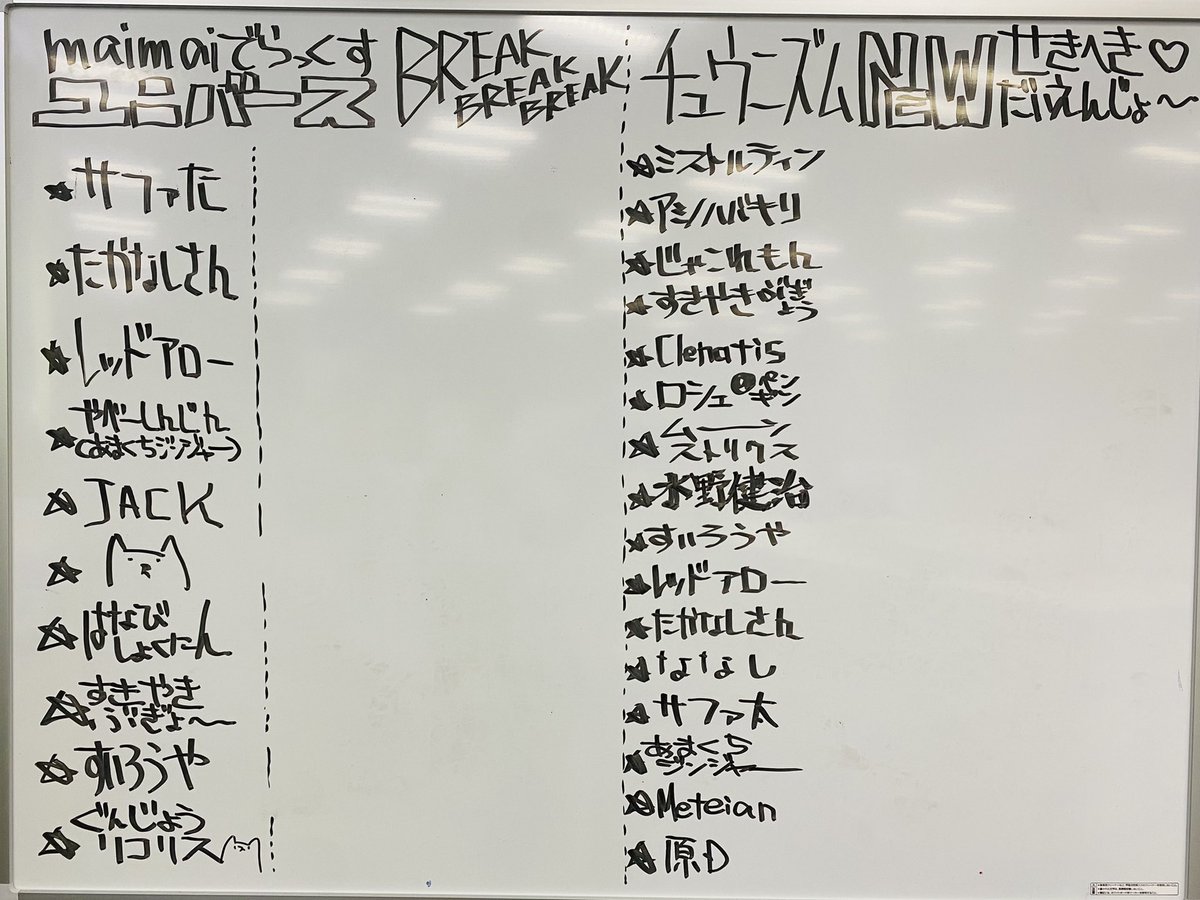 maimaiでらっくす
ユニバース
BREAK
BREAK
BREAK
チュウニズム NEW
せきへき♡
だいえんじょ〜
★サファた
★たかなしさん
★レッドアロー
★やべーしんじん
(あまくちジンジャー)
★JACK
★はなび
しょくたーん
★すきやき
ぶぎょ〜
★すいろうや
★ぐんじょう
リコリス
★ミストルティン
★アシノバキリ
★じゃこれもん
★すきやきぶぎょう
★Clematis
★ロシェ@ペンギン
★ムーン
ストリクス
★水野健治
★すいろうや
★レッドアロー
★たかなしさん
★ななし
★サファ太
★あまくち
ジンジャー
★Meteian
★原D